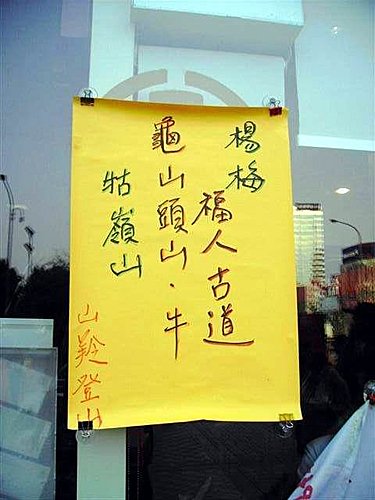 楊梅
福人古道
龜山頭山．牛
牯嶺山
山羚登山